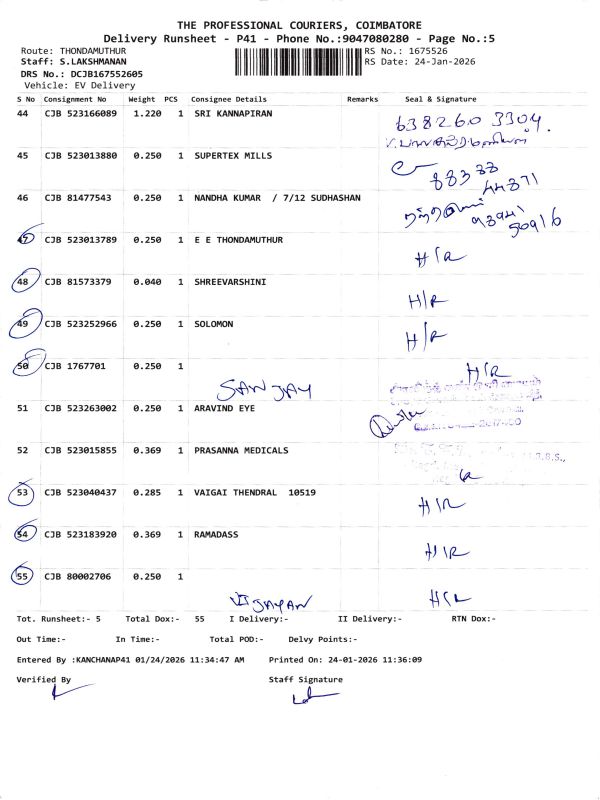 THE PROFESSIONAL COURIERS, COIMBATORE
Delivery Runsheet - P41 - Phone No.:9047080280 - Page No.:5
Route: THONDAMUTHUR RS No.: 1675526
Staff: S.LAKSHMANAN RS Date: 24-Jan-2026
DRS No.: DCJB167552605
Vehicle: EV Delivery
S No Consignment No Weight PCS Consignee Details Remarks Seal & Signature
44 CJB 523166089 1.220 1 SRI KANNAPIRAN 638260 3304.
45 CJB 523013880 0.250 1 SUPERTEX MILLS 88388
44871
46 CJB 81477543 0.250 1 NANDHA KUMAR / 7/12 SUDHASHAN
50916
47 CJB 523013789 0.250 1 E E THONDAMUTHUR H/R
48 CJB 81573379 0.040 1 SHREEVARSHINI H/R
49 CJB 523252966 0.250 1 SOLOMON H/R
50 CJB 1767701 0.250 1 H/R
SANJAY
51 CJB 523263002 0.250 1 ARAVIND EYE
52 CJB 523015855 0.369 1 PRASANNA MEDICALS
53 CJB 523040437 0.285 1 VAIGAI THENDRAL 10519 H/R
54 CJB 523183920 0.369 1 RAMADASS H/R
55 CJB 80002706 0.250 1 H/R
VIJAYAN
Tot. Runsheet:- 5 Total Dox:- 55 I Delivery:- II Delivery:- RTN Dox:-
Out Time:- In Time:- Total POD:- Delvy Points:-
Entered By :KANCHANAP41 01/24/2026 11:34:47 AM Printed On: 24-01-2026 11:36:09
Verified By Staff Signature